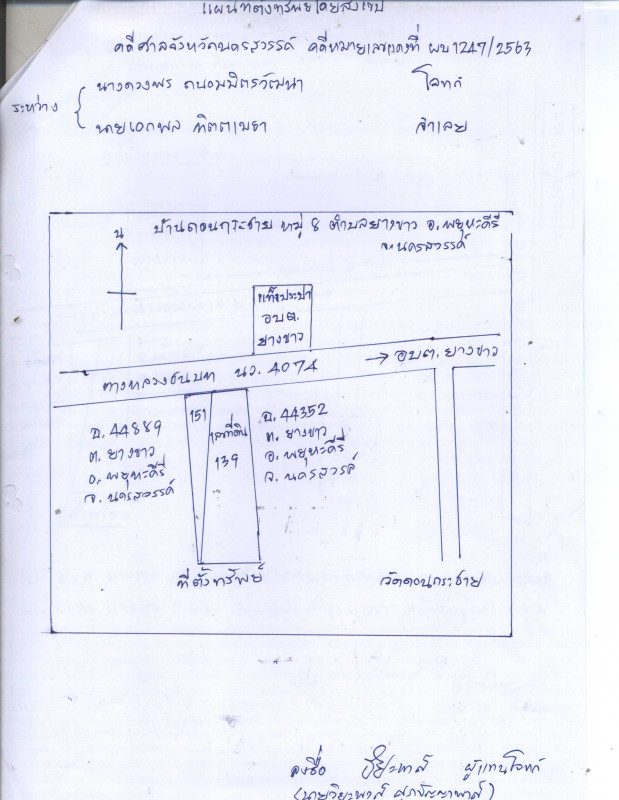 แผนที่ตั้งทรัพย์โดยสังเขป
คดีศาลจังหวัดนครสวรรค์ คดีหมายเลขแดงที่ ผบ1247/2563
ระหว่าง
นางดวงพร ถนอมมิตรวัฒนา โจทก์
นายเอกพล จำเลย
น
บ้านดอนกระชาย หมู่ 8 ตำบลยางขาว อ.พยุหะคีรี
จ.นครสวรรค์
แท็งประปา
อบต.
ยางขาว
ทางหลวงชนบท นว.4074
→ อบต.ยางขาว
ฉ.44889
ต.ยางขาว
อ.พยุหะคีรี
จ.นครสวรรค์
151
เลขที่ดิน
139
ฉ.44352
ต.ยางขาว
อ.พยุหะคีรี
จ.นครสวรรค์
ที่ตั้งทรัพย์
วัดดอนกระชาย
ลงชื่อ ผู้แทนโจทก์